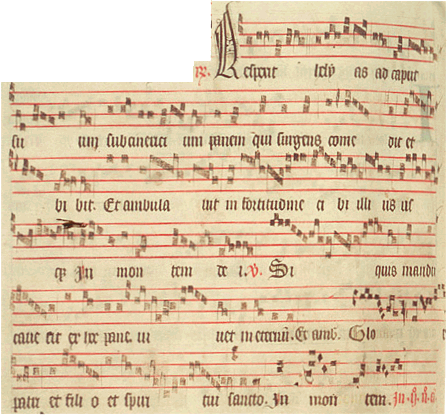 ℟. Respexit helyas ad caput
suum subcinericium panem qui surgens comedit et
bibit. Et ambulauit in fortitudine cibi illius us
qz In montem dei. ℣. Si quis mandu
cauerit ex hoc pane. uiuet in eternū. Et amb. Glo
patri et filio et spiritui sancto. In montem.